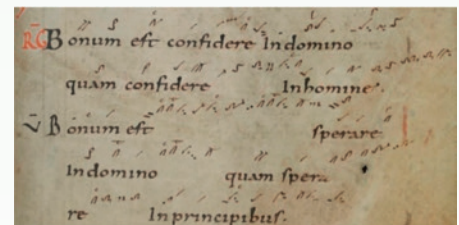 RG Bonum est confidere In domino
quam confidere In homine.
V Bonum est sperare
In domino quam spera
re In principibus.